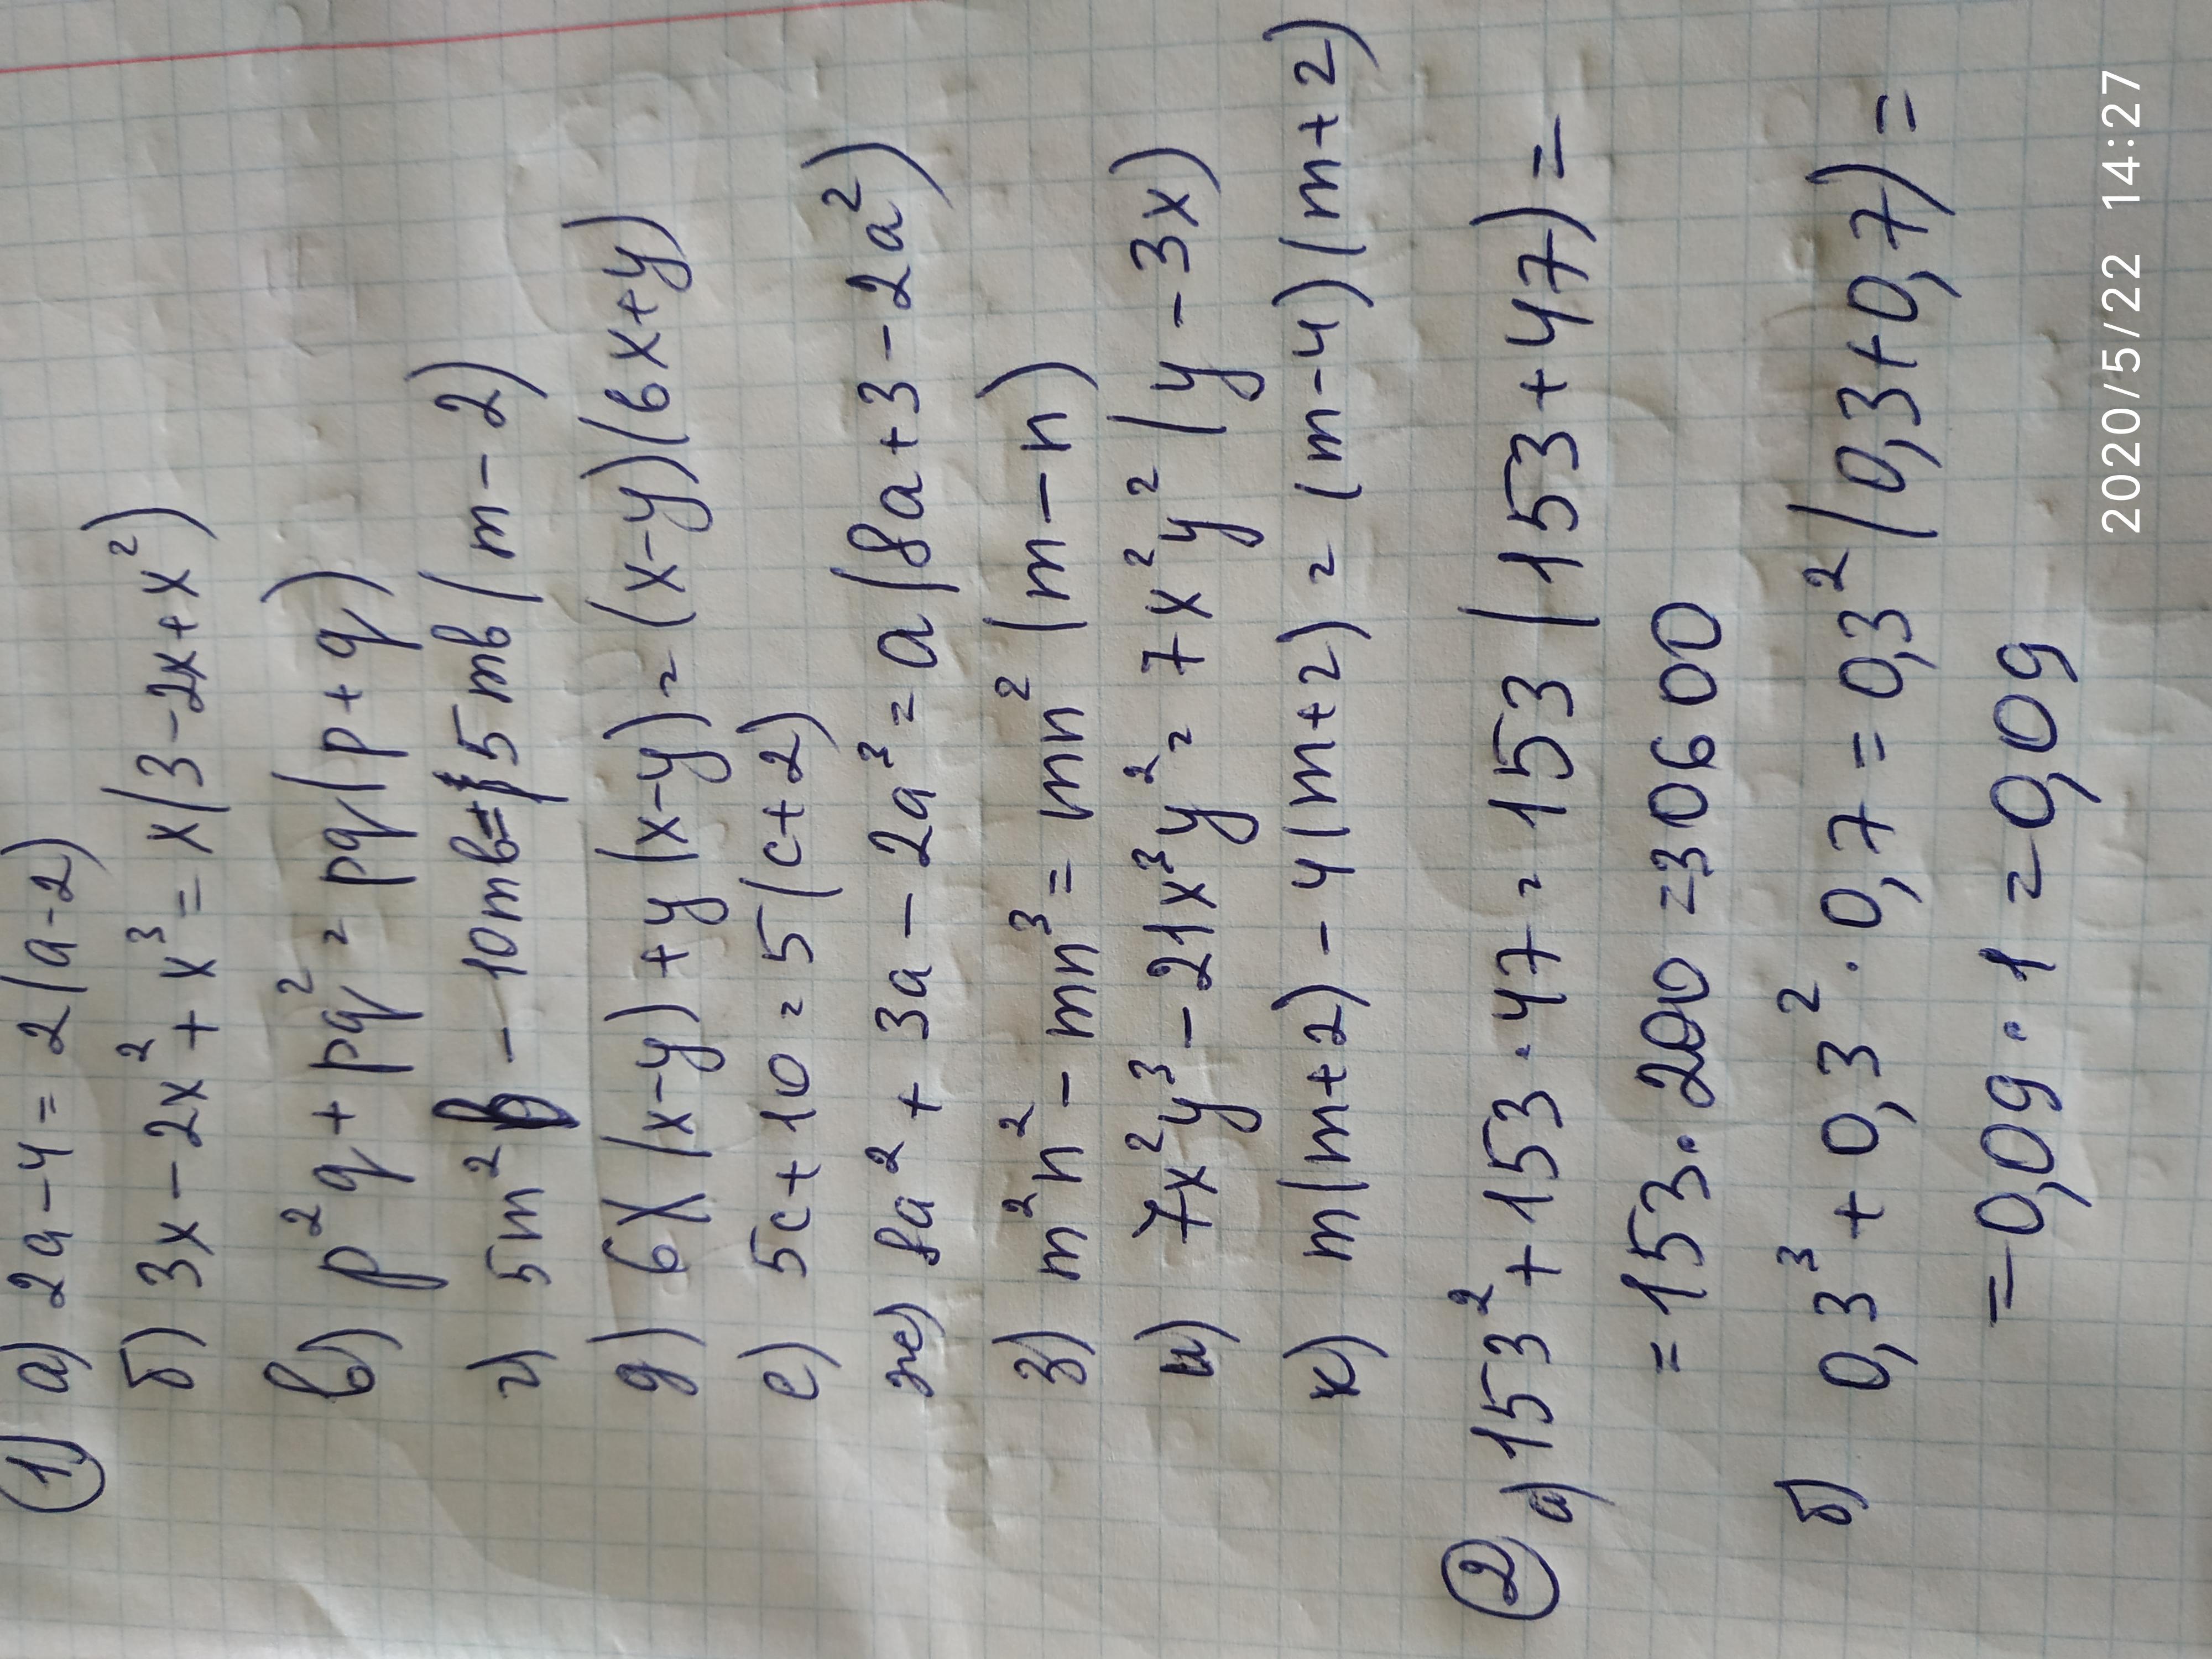 ① а) 2a-4=2(a-2)
б) 3x-2x²+x³=x(3-2x+x²)
в) p²q+pq²=pq(p+q)
г) 5m²b-10mb=5mb(m-2)
д) 6x(x-y)+y(x-y)=(x-y)(6x+y)
е) 5c+10=5(c+2)
ж) 8a²+3a-2a³=a(8a+3-2a²)
з) m²n²-mn³=mn²(m-n)
и) 7x²y³-21x³y²=7x²y²(y-3x)
к) m(m+2)-4(m+2)=(m-4)(m+2)
② а) 153²+153·47=153(153+47)=
=153·200=30600
б) 0,3³+0,3²·0,7=0,3²(0,3+0,7)=
=0,09·1=0,09
2020/5/22 14:27